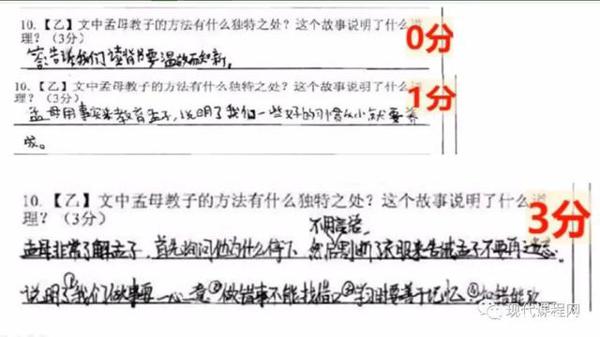 10.【乙】文中孟母教子的方法有什么独特之处？这个故事说明了什么
理？（3分）
0分
答:告诉我们读背要温故而知新。
10.【乙】文中孟母教子的方法有什么独特之处？这个故事说明了什么
理？（3分）
1分
孟母用事实来教育孟子,说明了我们一些好的习惯从小就要养
成。
10.【乙】文中孟母教子的方法有什么独特之处？这个故事说明了什么道
理？（3分）
3分
不用言语
孟母非常了解孟子,首先询问他为什么停下 然后割断了来告诫孟子不要再遗忘
说明了①我们做事要一心一意②做错事不能找借口③学习要善于记忆④知错能
现代课程网